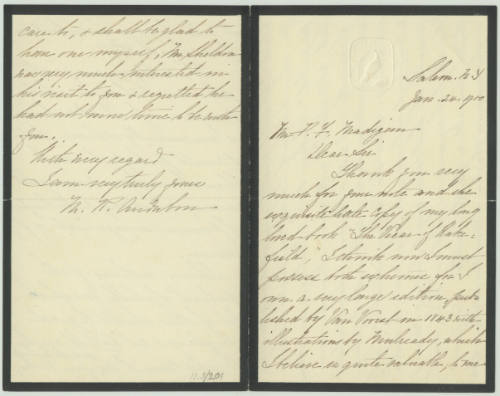 Salem. N.Y
Jan. 20. 1900
Mr P. F. Madigan
Dear Sir
Thank you very
much for your note and the
exquisite copy of my long
loved book "The Vicar of Wake-
field", I think now I must
possess both extremes for I
own a very large edition pub-
lished by Van Voorst in 1843 with
illustrations by Mulready, which
I believe is quite valuable, to me
care to, & shall be glad to
have one myself. Mr Sheldon
was very much interested in
his visit to you & regretted he
had not more time to be with
you.
With very regard
I am very truly yours
M. R. Audubon